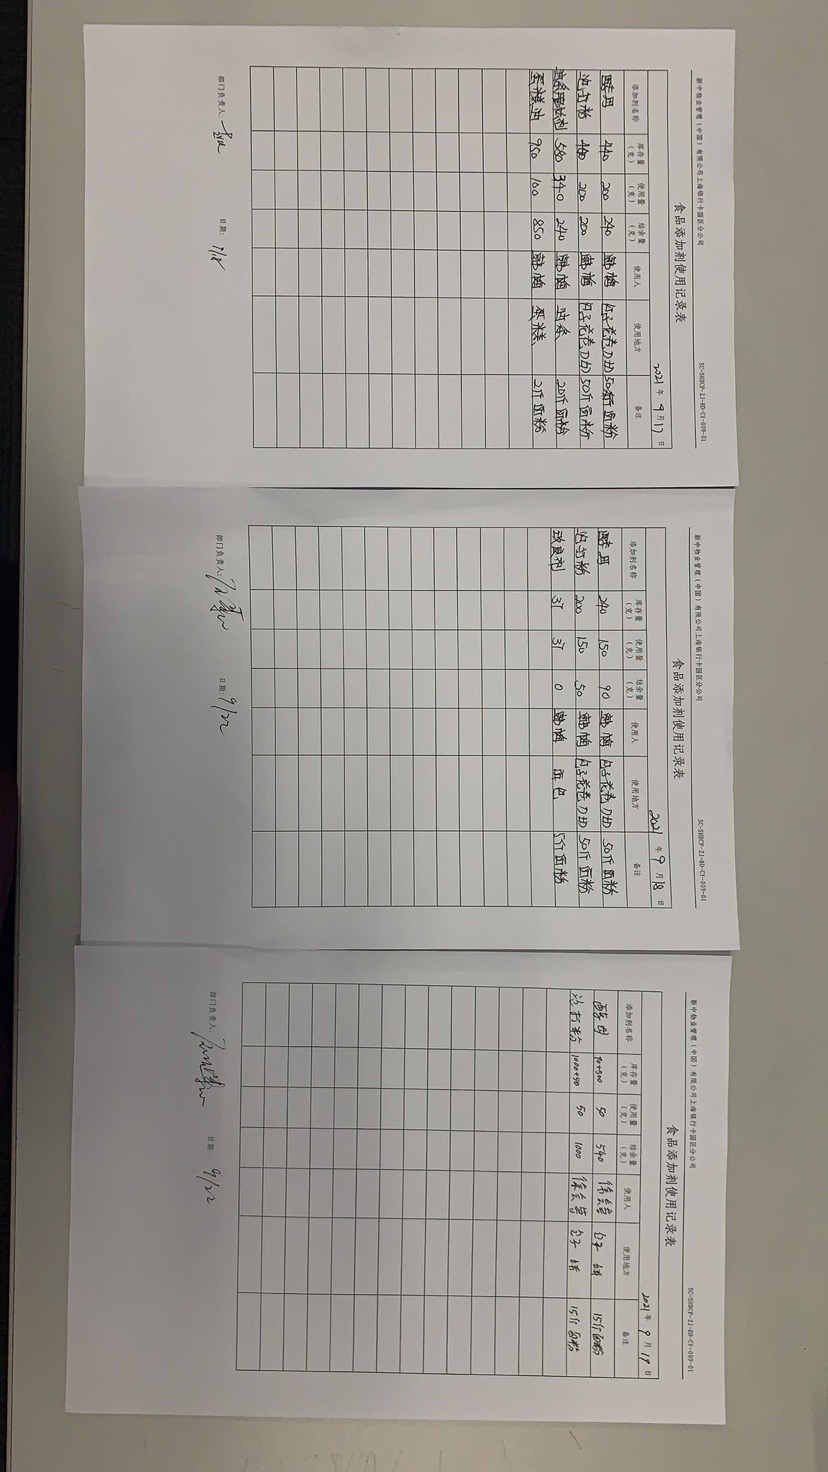 新中物业管理（中国）有限公司上海银行卡园区分公司 SC-SHBCP-ZJ-BD-CY-009-01
食品添加剂使用记录表
2021 年 9 月 17 日
添加剂名称 库存量（克） 使用量（克） 结余量（克） 使用人 使用地方 备注
酵母 440 200 240 50斤面粉
泡打粉 400 200 200 50斤面粉
580 340 240 20斤面粉
蛋糕油 950 100 850 蛋糕 2斤面粉
部门负责人： 日期： 9/18
新中物业管理（中国）有限公司上海银行卡园区分公司 SC-SHBCP-ZJ-BD-CY-009-01
食品添加剂使用记录表
2021 年 9 月 18 日
添加剂名称 库存量（克） 使用量（克） 结余量（克） 使用人 使用地方 备注
酵母 240 150 90 50斤面粉
泡打粉 200 150 50 50斤面粉
改良剂 37 37 0 面包 5斤面粉
部门负责人： 日期： 9/22
新中物业管理（中国）有限公司上海银行卡园区分公司 SC-SHBCP-ZJ-BD-CY-009-01
食品添加剂使用记录表
2021 年 9 月 19 日
添加剂名称 库存量（克） 使用量（克） 结余量（克） 使用人 使用地方 备注
酵母 90+500 50 540 包子 15斤面粉
泡打粉 1000+50 50 1000 包子 15斤面粉
部门负责人： 日期： 9/22